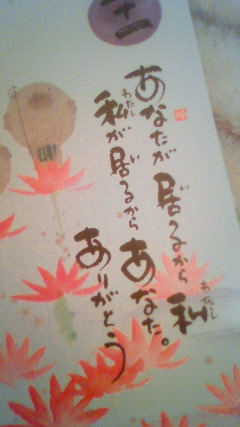 十一
あなたが居るから私
わたし
私が居るからあなた。
わたし
ありがとう